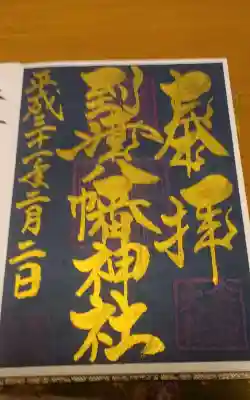 奉拝
到津八幡神社
平成三十一年三月二日